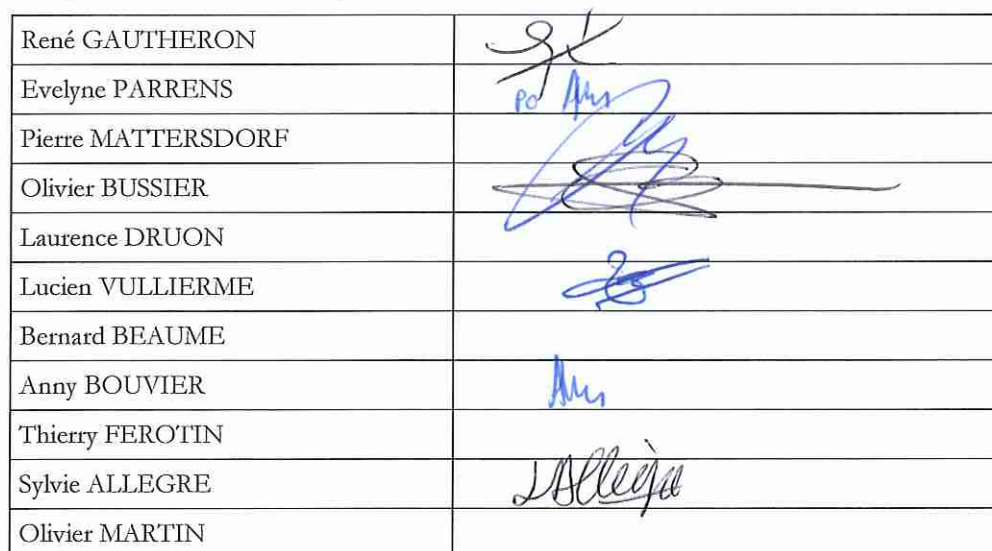 René GAUTHERON
Evelyne PARRENS
po
Pierre MATTERSDORF
Olivier BUSSIER
Laurence DRUON
Lucien VULLIERME
Bernard BEAUME
Anny BOUVIER
Thierry FEROTIN
Sylvie ALLEGRE
Olivier MARTIN